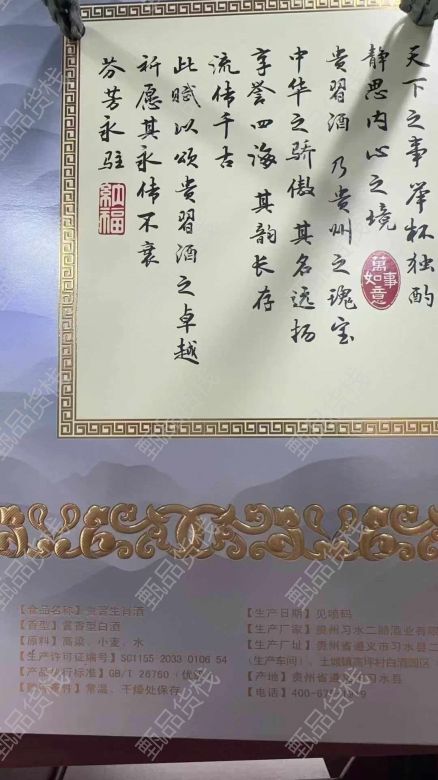 天下之事 举杯独酌
静思内心之境
贵習酒 乃贵州之瑰宝
中华之骄傲 其名远扬
享誉四海 其韵长存
流传千古
此赋以颂贵習酒之卓越
祈愿其永传不衰
芬芳永驻
納福
萬事如意
【食品名称】贵習生肖酒
【香型】酱香型白酒
【原料】高粱、小麦、水
【生产许可证编号】SC1155 2033 0106 54
【产品执行标准】GB/T 26760（优级）
【贮存条件】常温、干燥处保存
【生产日期】见喷码
【生产厂家】贵州习水二郎酒业有限
【生产厂址】贵州省遵义市习水县二
（生产车间）、土城镇高坪村白酒园区
【产地】贵州省遵义市习水县
【电话】400-67
甄品货栈